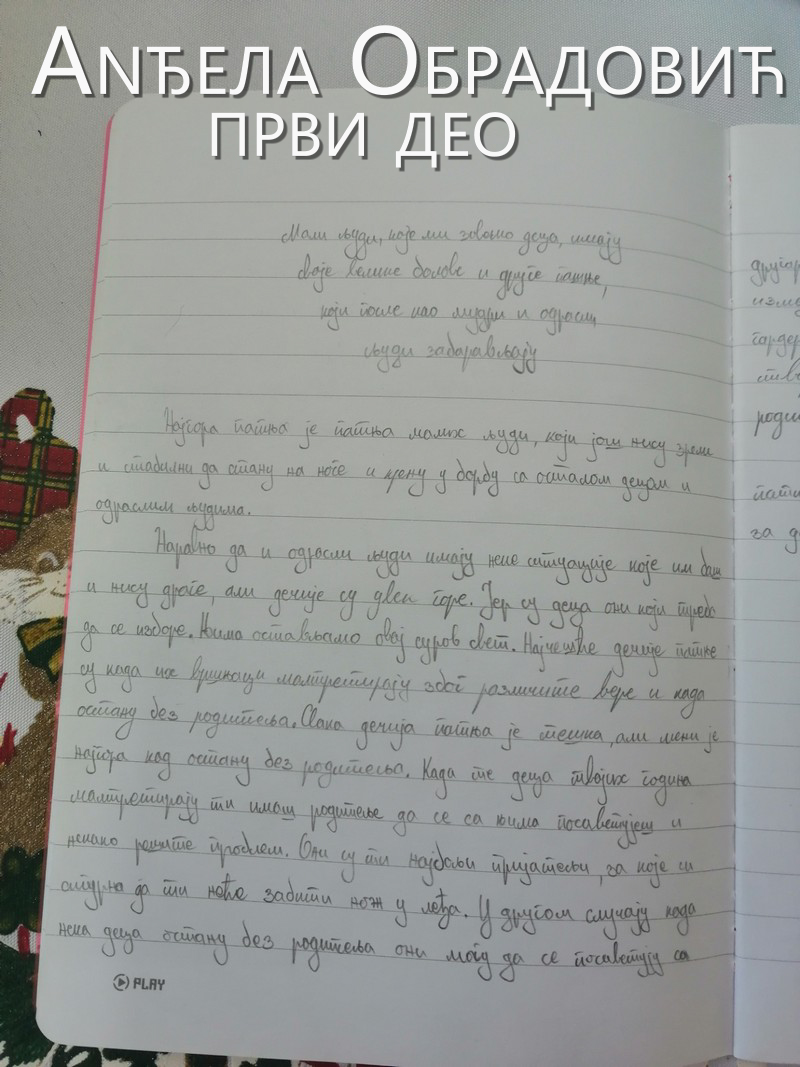 Анђела Обрадовић
први део
Мали људи, које ми зовемо деца, имају
своје велике болове и друге патње,
који после као мудри и одрасли
људи заборављају
Најгора патња је патња малих људи, који још нису зрели
и стабилни да стану на ноге и крену у борбу са осталом децом и
одраслим људима.
Наравно да и одрасли људи имају неке ситуације које им баш
и нису драге, али дечије су увек горе. Јер су деца они који треба
да се изборе. Њима остављамо овај суров свет. Најчешће дечије патње
су када их вршњаци малтретирају због различите вере и када
остану без родитеља. Свака дечија патња је тешка, али мени је
најгора кад остану без родитеља. Када те деца твојих година
малтретирају ти имаш родитеље да се са њима посаветујеш и
некако решите проблем. Они су ти најбољи пријатељи, за које си
сигурна да ти неће забити нож у леђа. У другом случају када
нека деца остану без родитеља они могу да се посаветују са
PLAY
родит
за д